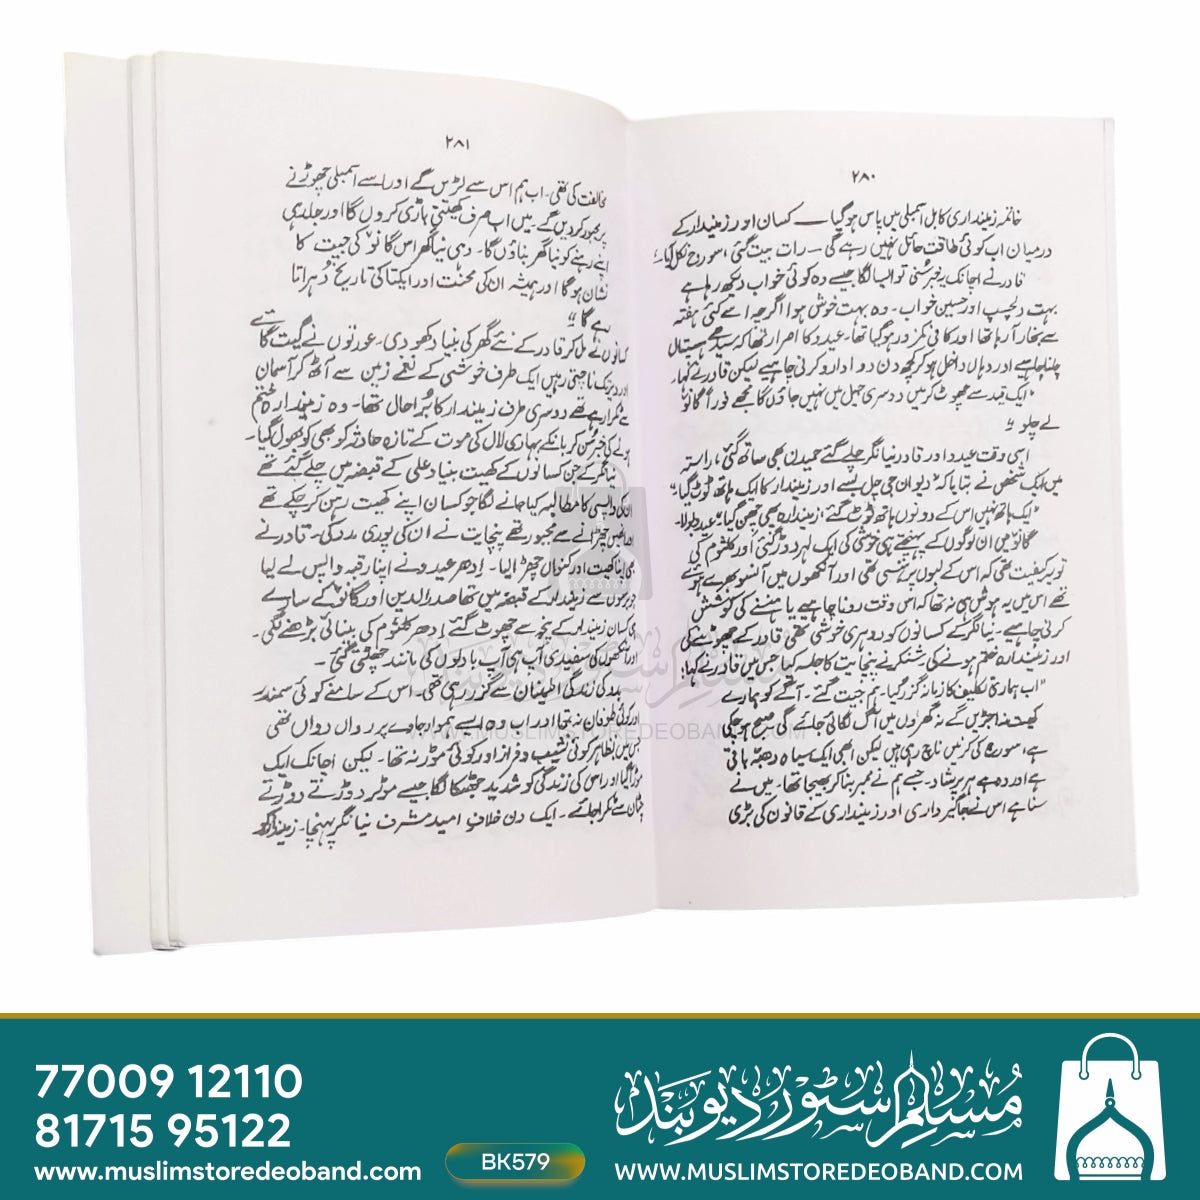 ۲۸۰
خاتمہ زمینداری کا بل اسمبلی میں پاس ہوگیا — کسان اور زمیندار کے
درمیان اب کوئی طاقت حائل نہیں رہے گی — رات بیت گئی، سورج نکل آیا۔
قادر نے اچانک یہ خبر سُنی تو ایسا لگا جیسے وہ کوئی خواب دیکھ رہا ہے
بہت دلچسپ اور حسین خواب۔ وہ بہت خوش ہوا اگرچہ اسے کئی ہفتہ
سے بخار آ رہا تھا اور کافی کمزور ہوگیا تھا۔ عیدو کا اصرار تھا کہ سیدھے ہسپتال
چلنا چاہیے اور وہاں داخل ہوکر کچھ دن دوا دارو کرنی چاہیے لیکن قادر نے کہا۔
"ایک قید سے چھوٹ کر میں دوسری جیل میں نہیں جاؤں گا مجھے فوراً گاؤں
لے چلو"
اسی وقت عیدو اور قادر نیا نگر چلے گئے حمیدن بھی ساتھ گئی، راستہ
میں ایک شخص نے بتایا کہ "دیوان جی چل بسے اور زمیندار کا ایک ہاتھ ٹوٹ گیا"
"ایک ہاتھ نہیں اس کے دونوں ہاتھ ٹوٹ گئے، زمیندارہ بھی چھن گیا" عیدو بولا۔
گاؤں میں ان لوگوں کے پہنچتے ہی خوشی کی ایک لہر دوڑ گئی اور کلثوم کی
تو یہ کیفیت تھی کہ اس کے لبوں پر ہنسی تھی اور آنکھوں میں آنسو بھرے ہوئے
تھے اس میں یہ ہوش ہی نہ تھا کہ اس وقت رونا چاہیے یا ہنسنے کی کوشش
کرنی چاہیے۔ نیا نگر کے کسانوں کو دوہری خوشی تھی قادر کے چھوٹنے کی
اور زمیندارہ ختم ہونے کی شنکر نے پنچایت کا جلسہ کیا جس میں قادر نے کہا:
"اب ہماری تکلیف کا زمانہ گزر گیا۔ ہم جیت گئے۔ آگے کو ہمارے
کھیت نہ اجڑیں گے نہ گھروں میں آگ لگائی جائے گی صبح ہو چکی
ہے، سورج کی کرنیں ناچ رہی ہیں لیکن ابھی ایک سیاہ دھبہ باقی
ہے اور وہ ہے ہر پرشاد۔ جسے ہم نے ممبر بنا کر بھیجا تھا۔ میں نے
سنا ہے اس نے جاگیرداری اور زمینداری کے قانون کی بڑی
۲۸۱
مخالفت کی تھی۔ اب ہم اس سے لڑیں گے اور اسے اسمبلی چھوڑنے
پر مجبور کر دیں گے۔ میں اب صرف کھیتی باڑی کروں گا اور جلدی
اپنے رہنے کو نیا گھر بناؤں گا۔ وہی نیا گھر اس گاؤں کی جیت کا
نشان ہوگا اور ہمیشہ ان کی محنت اور ایکتا کی تاریخ دُہراتا
رہے گا"
کسانوں نے مل کر قادر کے نئے گھر کی بنیاد کھودی۔ عورتوں نے گیت گائے
اور دیر تک ناچتی رہیں ایک طرف خوشی کے نغمے زمین سے اُٹھ کر آسمان
سے ٹکرا رہے تھے دوسری طرف زمیندار کا بُرا حال تھا۔ وہ زمیندارہ ختم
ہونے کی خبر سُن کر بانکے بہاری لال کی موت کے تازہ حادثہ کو بھی کو بھول گیا۔
نیا نگر کے جن کسانوں کے کھیت بنیاد علی کے قبضہ میں چلے گئے تھے
ان کی واپسی کا مطالبہ کیا جانے لگا جو کسان اپنے کھیت رہن کر چکے تھے
اور انہیں چھڑانے سے مجبور تھے پنچایت نے ان کی پوری مدد کی۔ قادر نے
بھی اپنا کھیت اور کنواں چھڑا لیا۔ ادھر عیدو نے اپنا رقبہ واپس لے لیا
جو برسوں سے زمیندار کے قبضہ میں تھا صدرالدین اور گاؤں کے سارے
ہی کسان زمیندار کے پنجہ سے چھوٹ گئے ادھر کلثوم کی بینائی بڑھنے لگی۔
اور آنکھوں کی سفیدی آپ ہی آپ بادلوں کی مانند چھٹتی گئی۔
بدو کی زندگی اطمینان سے گزر رہی تھی۔ اس کے سامنے کوئی سمندر
اور کوئی طوفان نہ تھا اور اب وہ ایسے ہموار جادے پر رواں دواں تھی
جس میں بظاہر کوئی نشیب و فراز اور کوئی موڑ نہ تھا۔ لیکن اچانک ایک
موڑ آگیا اور اس کی زندگی کو شدید جھٹکا لگا جیسے موٹر دوڑتے دوڑتے
چٹان سے ٹکرا جائے۔ ایک دن خلافِ امید مشرف نیا نگر پہنچا۔ زمیندار کو
WWW.MUSLIMSTOREDEOBAND.COM
77009 12110
81715 95122
www.muslimstoredeoband.com
BK579
مسلم سٹور دیوبند
WWW.MUSLIMSTOREDEOBAND.COM